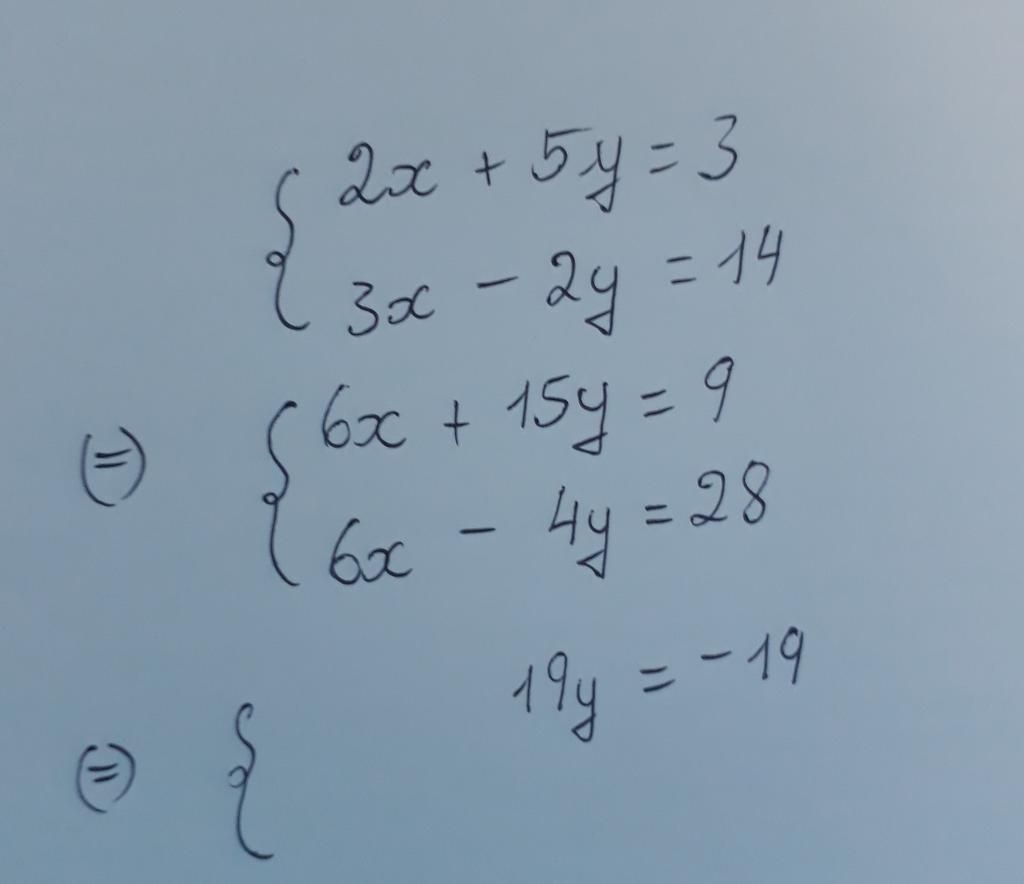 { 2x + 5y = 3
3x - 2y = 14
(=) { 6x + 15y = 9
6x - 4y = 28
19y = -19
(=) {